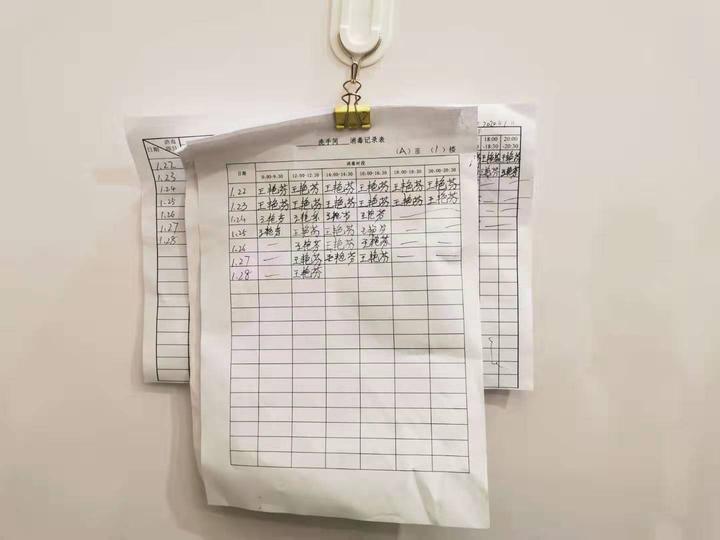 洗手间 消毒记录表
(A)座 (1)楼
日期 消毒时段
8:00-9:30 12:00-12:30 14:00-14:30 16:00-16:30 18:00-18:30 20:00-20:30
1.22 王艳芬 王艳芬 王艳芬 王艳芬 王艳芬 王艳芬
1.23 王艳芬 王艳芬 王艳芬 王艳芬 王艳芬 王艳芬
1.24 王艳芬 王艳芬 王艳芬 王艳芬 — —
1.25 王艳芬 王艳芬 王艳芬 王艳芬 — —
1.26 — 王艳芬 王艳芬 王艳芬 — —
1.27 — 王艳芬 王艳芬 王艳芬 — —
1.28 — 王艳芬
日期
1.22
1.23
1.24
1.25
1.26
1.27
1.28
18:00 20:00
-18:30 -20:30
王艳芬 王艳芬
王艳芬 王艳芬